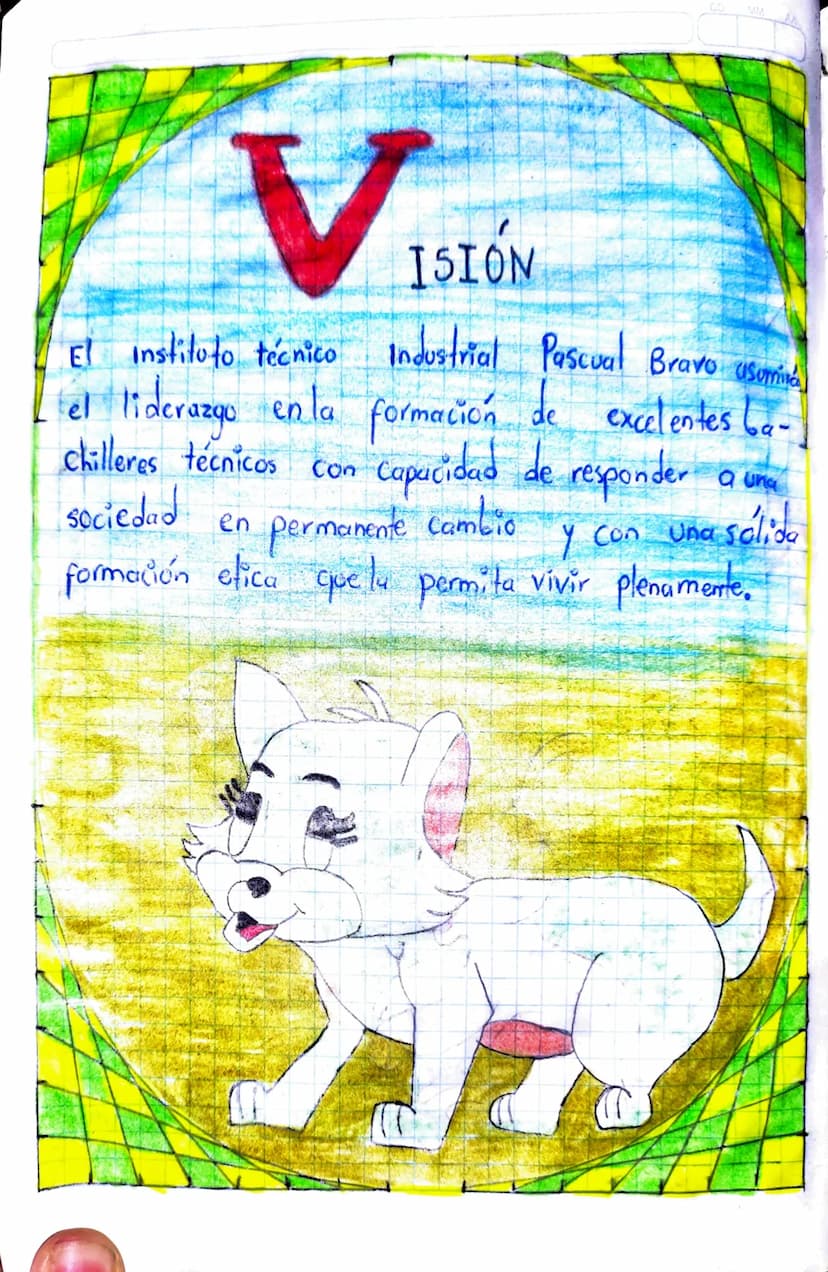 VISIÓN
El instituto técnico Industrial Pascual Bravo asumirá
el liderazgo en la formación de excelentes ba-
chilleres técnicos con capacidad de responder a una
sociedad en permanente cambio y con una sólida
formación etica que la permita vivir plenamente.